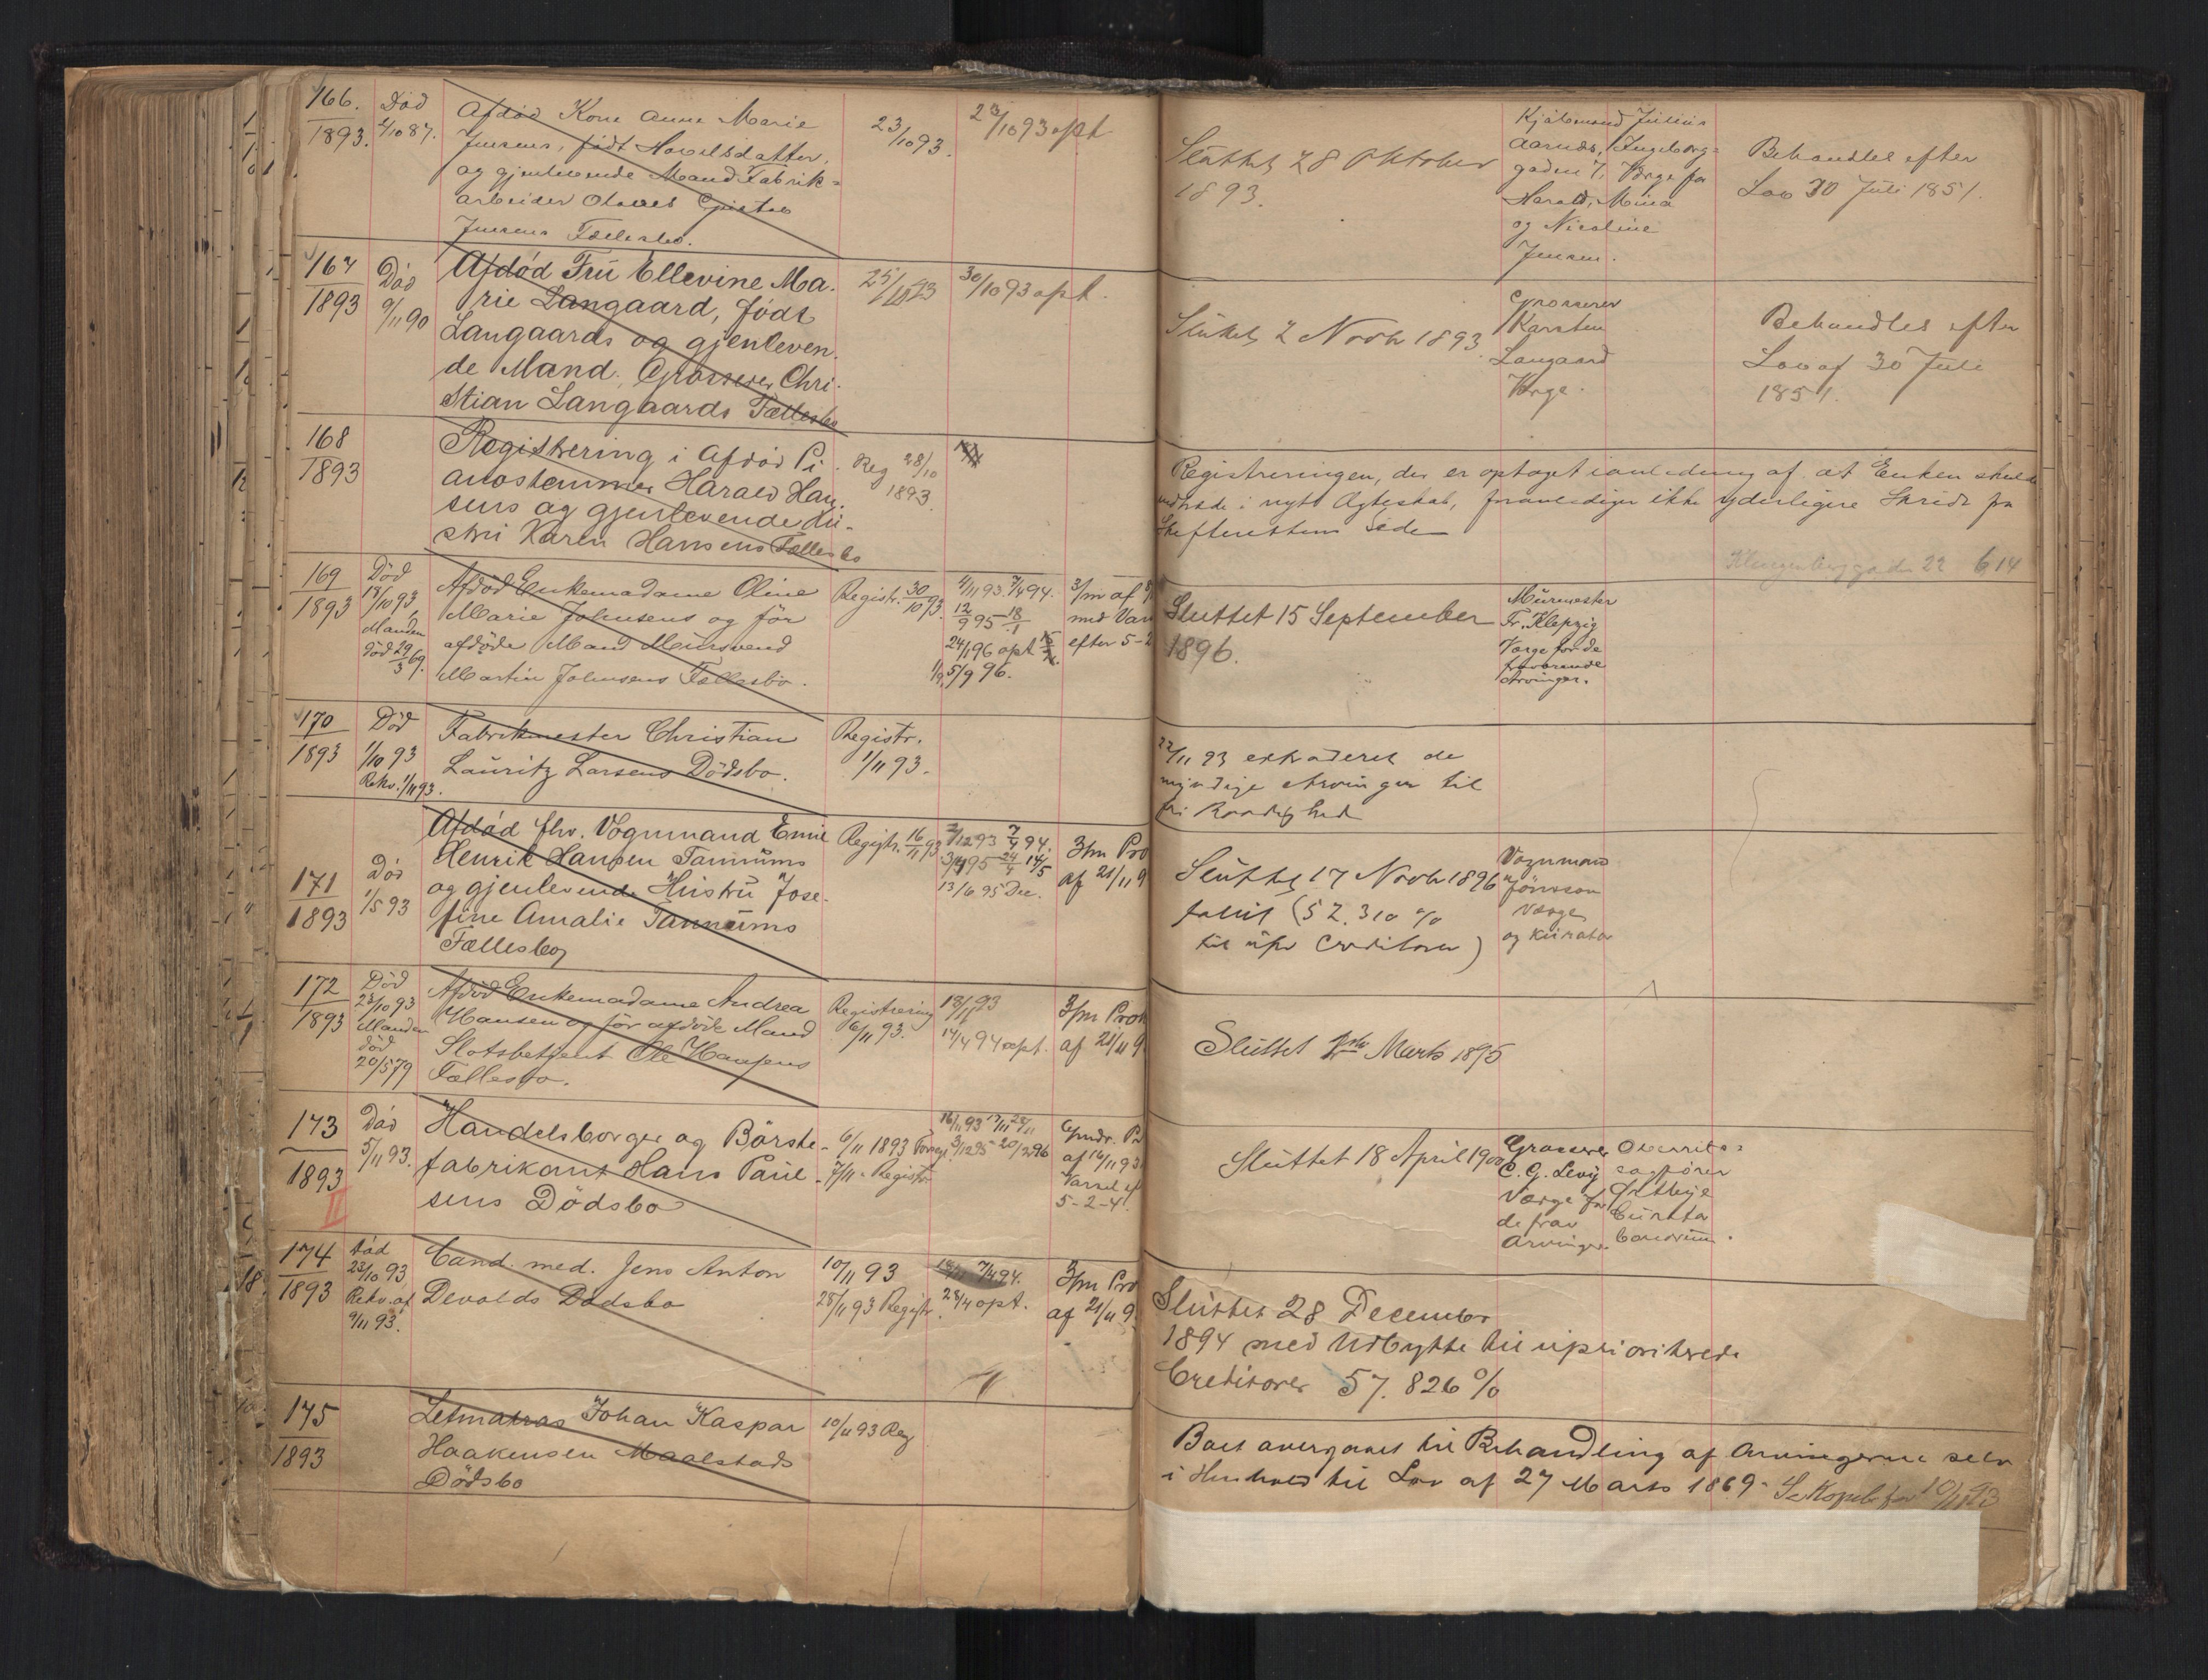 166.
1893.
Död
2/10 87.
Afdöd Kone Anne Marie
Jensens, født Havelsdatter,
og gjenlevende Mand Fabrik=
arbeider Olaves Gustav
Jensens Fællesbo.
23/10 93.
23/10 93 opt
Sluttet 28 Oktober
1893.
Kjøbmand Julius
Aarnds, Ingeborg=
gaden 7, Værge for
Harald, Mina
og Nicoline
Jensen.
Behandlet efter
Lov 30 Juli 1851.
167
1893
Död
9/11 90
Afdöd Frü Ellevine Ma-
rie Langaard, födt
Langaards og gjenleven-
de Mand, Grosserer Chri-
stian Langaards Fællesbo
25/10 93
30/10 93 opt.
Sluttet 2 Novbr 1893.
Grosserer
Karsten
Langaard
Værge.
Behandles efter
Lov af 30 Juli
1851.
168
1893
Registrering i Afdöd Pi-
anostemmer Harald Han-
sens og gjenlevende Hu-
stru Karen Hansens Fællesbo
Reg 28/10
1893.
Registreringen, der er optaget i anledning af at Enken skulde
indtræde i nyt Ægteskab, foranlediger ikke yderligere Skridt fra
Skifterettens Side
Klingenberggade 22 614
169
1893
Död
18/10 93,
Manden
död 29/3 69.
Afdöd Enkemadame Oline
Marie Johnsens og för
afdöde Mand Mürsvend
Martin Johnsens Fællesbo.
Registr. 30/10 93.
4/11 93. 7/4 94.
12/9 95 18/1
24/1 96 opt
5/9 96.
3/m af
med Var
efter 5-2
Sluttet 15 September
1896.
Mürmester
Fr. Klepzig
Værge for de
fraværende
Arvinger.
170
1893
Död
1/10 93
Rekv. 1/11 93.
Fabrikmester Christian
Lauritz Larsens Dödsbo.
Registr.
1/11 93.
22/11 93 extraderet de
myndige Arvinger til
fri Raadighed
171
1893
Död
1/5 93
Afdöd fhv. Vognmand Emil
Henrik Hansen Tannums
og gjenlevende Hustrü Jose-
fine Amalie Tannums
Fællesbo
Registr. 16/11 93
2/12 93 7/4 94.
3/4 95 24/4 14/5
13/6 95 Dec.
3/m Pro
af 21/11 9
Sluttet 17 Novbr 1896
fallit (52.310 %
til upr Creditorer)
Vognmand
Jönsson
Værge
og Kurator
172
1893
Död
23/10 93
Manden
död
20/5 79
Afdöd Enkemadame Andrea
Hansen og för afdöde Mand
Slotsbetjent Ole Hansens
Fællesbo.
Registrering
6/11 93.
18/11 93
14/4 94 opt.
3/m Prok
af 21/11 9
Sluttet 1ste Marts 1895
173
1893
II
Död
5/11 93.
Handelsborger og Börste-
fabrikant Hans Paul-
sens Dödsbo
6/11 1893 Forsegl.
7/11 - Registr
16/11 93 17/11 28/11
3/12 95 20/2 96
6mdr. Pr
af 16/11 93
Varsel ef
5-2-4.
Sluttet 18 April 1900
Grosserer
C. G. Levy
Værge for
de frav
Arvinger.
Overrets=
sagförer
Curator
bonorum.
174
1893
Död
23/10 93
Rekv. af
9/11 93.
Cand. med. Jens Anton
Devolds Dödsbo
10/11 93
28/11 93 Registr.
18/11 7/4 94.
28/4 opt.
3/m Pro
af 21/11 9
Sluttet 28 December
1894 med Udbytte til uprioriterede
Creditorer 57.826 %
175
1893
Letmatros Johan Kaspar
Haakensen Maalstads
Dödsbo
10/11 93 Reg
Boet overgivet til Behandling af Arvingerne selv
i Henhold til Lov af 27 Marts 1869. Se Kopib for 10/11 93